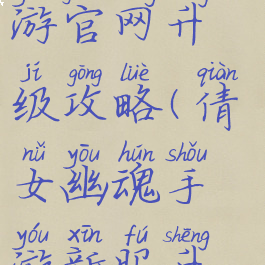 游官网升
jí gōng lüè qiàn
级攻略(倩
nǚ yōu hún shǒu
女幽魂手
yóu xīn fú shēng
游新服升